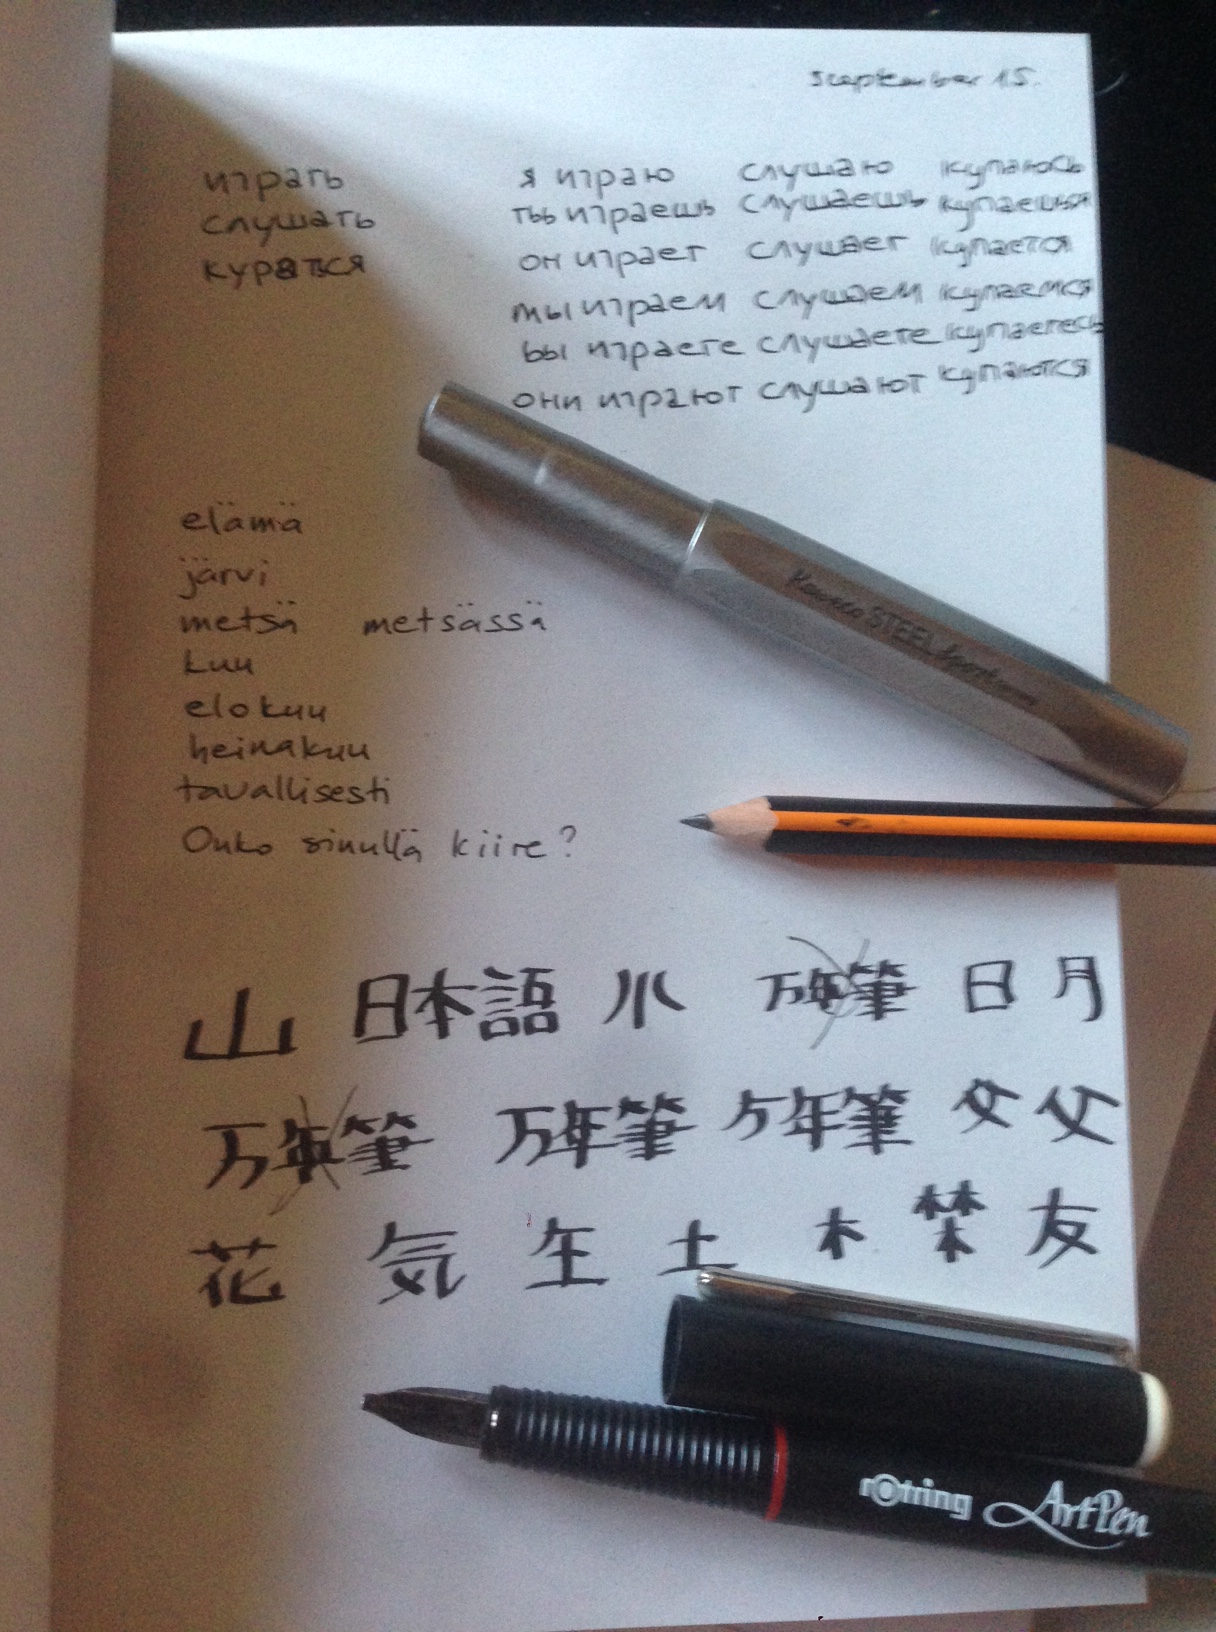 September 15.
играть я играю слушаю купаюсь
слушать ты играешь слушаешь купаешься
кураться он играет слушает купается
мы играем слушаем купаемся
вы играете слушаете купаетесь
они играют слушают купаются
elämä
järvi
metsä metsässä
kuu
elokuu
heinäkuu
tavallisesti
Onko sinulla kiire?
Kaweco STEEL Sport
山 日本語 川 日 月
万年筆 万年筆 父 父
花 気 生 土 木 友
rotring ArtPen